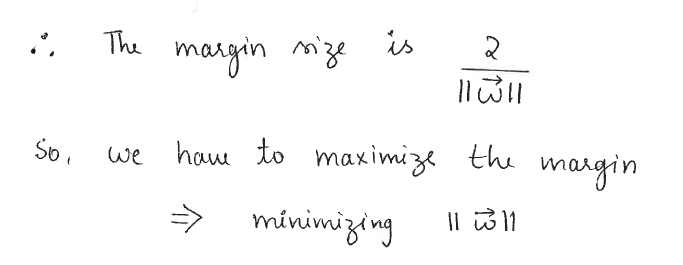 ∴ The margin size is 2 / ||w⃗||
So, we have to maximize the margin
⇒ minimizing ||w⃗||